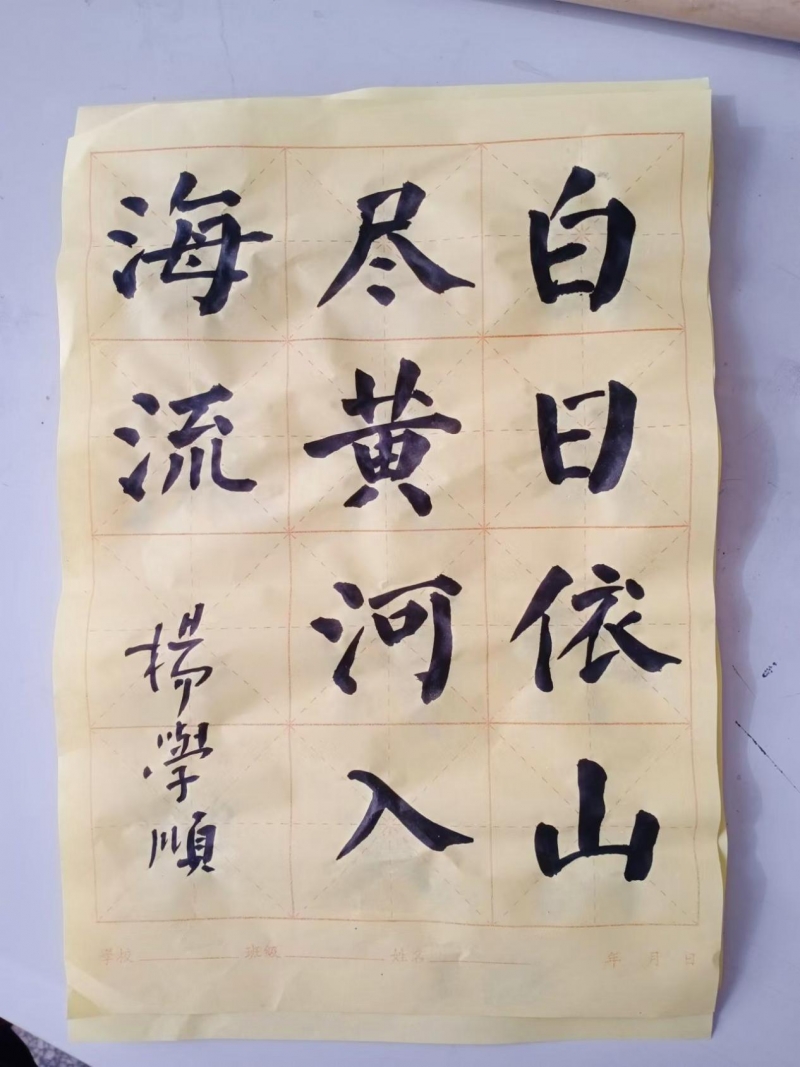 白日依山
尽黄河入
海流
楊學順
学校 班级 姓名 年 月 日